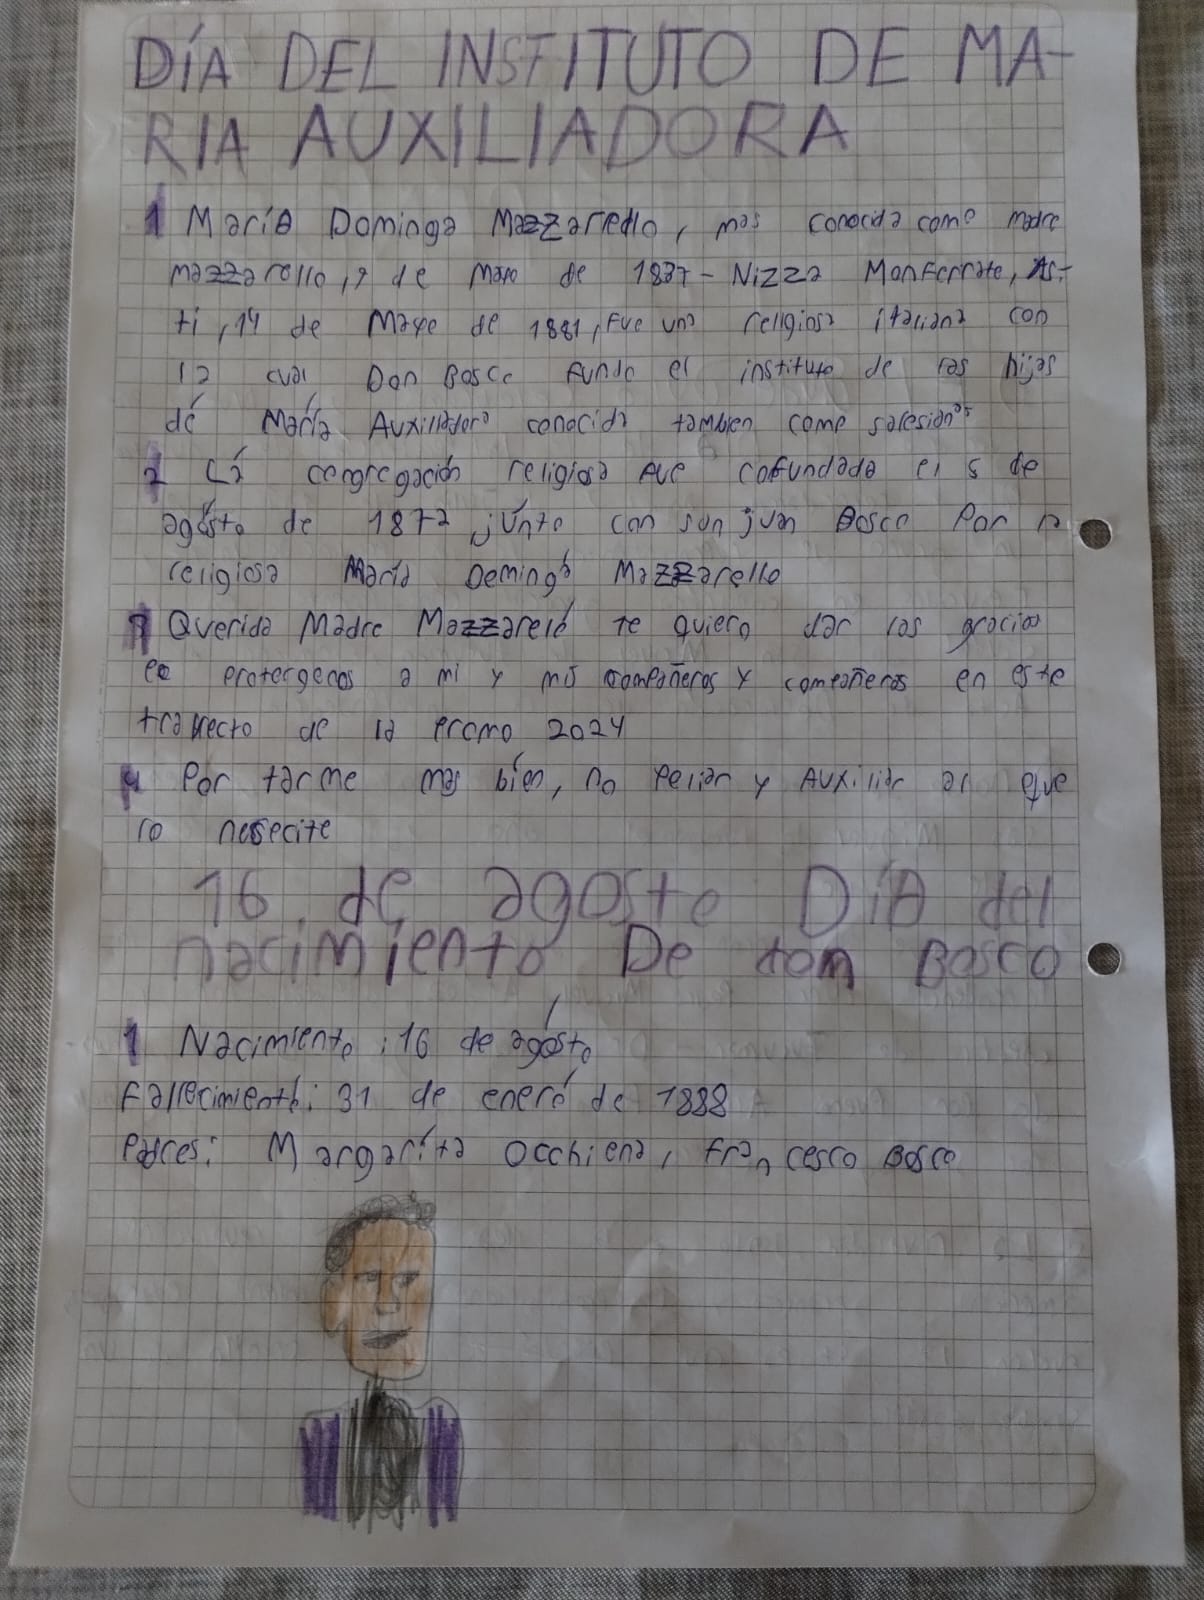 DÍA DEL INSTITUTO DE MA-
RIA AUXILIADORA
1 María Dominga Mazzarello, mas conocida como madre
mazzarello, 9 de Mayo de 1837 - Nizza Monferrate, As-
ti, 14 de Mayo de 1881, Fue una religiosa italiana con
la cual Don Bosco fundo el instituto de las hijas
dé María Auxiliadora conocida tambien como salesianas
2 Lá congregación religiosa Fue cofundada el 5 de
agósto de 1872 júnto con sun juan Bosco Por la
religiosa María Deminga Mazzarello
3 Querida Madre Mazzareló te quiero dar las gracias
protergenos a mi y mis compañeros y compañeras en este
trayecto de la promo 2024
4 Portarme mas bien, no Peliar y Auxiliar al que
lo nesecite
16 de agosto DíA del
nacimiento De Don Bosco
1 Nacimiento: 16 de agósto
Fallecimientó: 31 de eneró de 1888
Padres: Margaríta Occhiena, francesco Bosco